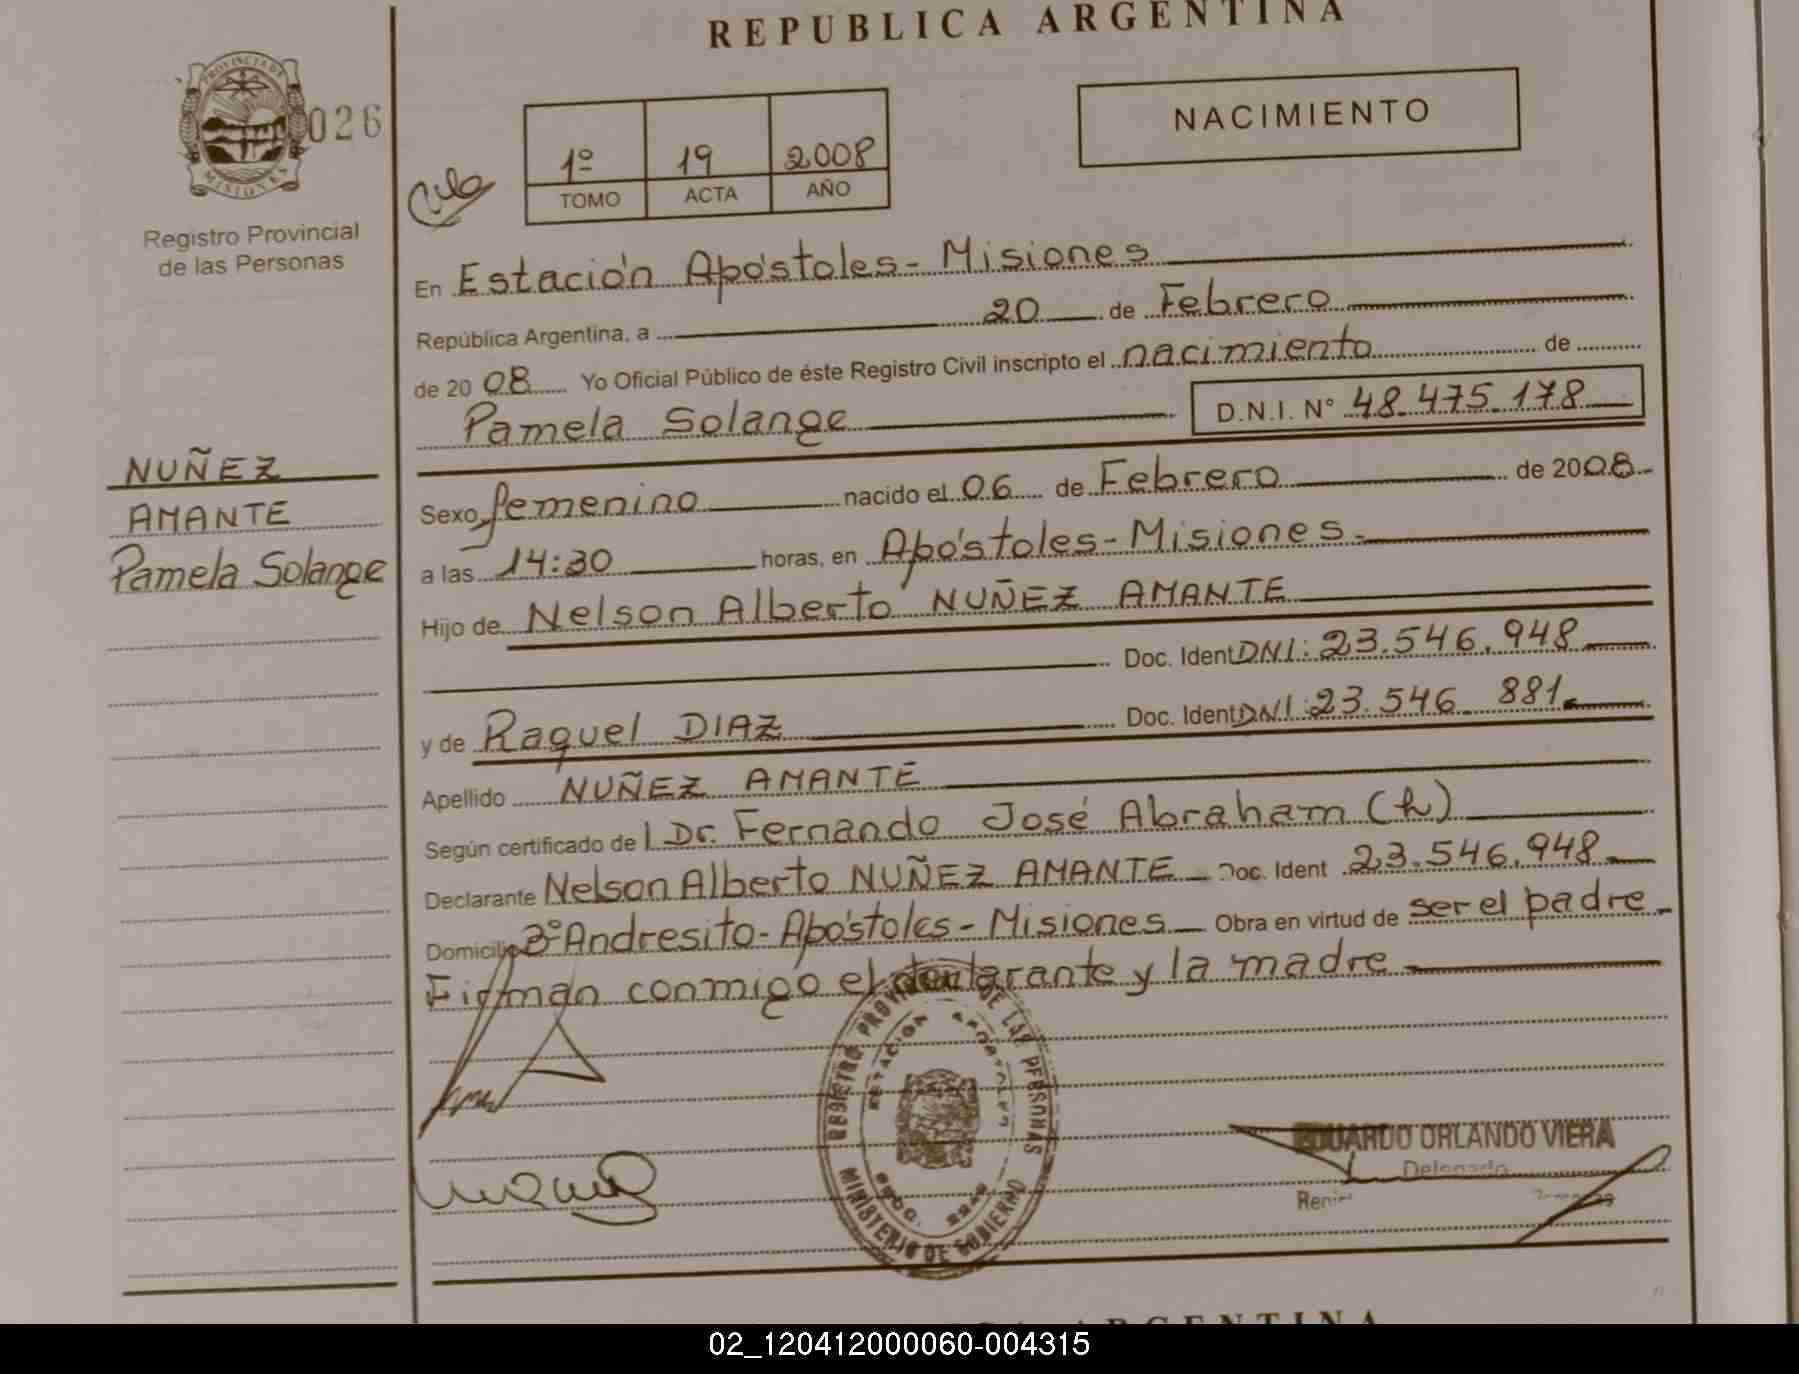 REPUBLICA ARGENTINA
PROVINCIA DE
MISIONES
026
Registro Provincial
de las Personas
NACIMIENTO
1º 19 2008
TOMO ACTA AÑO
En Estación Apóstoles - Misiones
República Argentina, a 20 de Febrero
de 20 08 Yo Oficial Público de éste Registro Civil inscripto el nacimiento de
Pamela Solange D.N.I. Nº 48.475.178
NUÑEZ
AMANTE
Pamela Solange
Sexo femenino nacido el 06 de Febrero de 2008
a las 14:30 horas, en Apóstoles - Misiones
Hijo de Nelson Alberto NUÑEZ AMANTE
Doc. Ident DNI: 23.546.948
y de Raquel DIAZ Doc. Ident DNI: 23.546.881
Apellido NUÑEZ AMANTE
Según certificado de l Dr. Fernando José Abraham (h)
Declarante Nelson Alberto NUÑEZ AMANTE Doc. Ident 23.546.948
Domicilio Bº Andresito - Apóstoles - Misiones Obra en virtud de ser el padre
Firman conmigo el declarante y la madre
REGISTRO PROVINCIAL DE LAS PERSONAS
ESTACION APOSTOLES
MINISTERIO DE GOBIERNO
EDUARDO ORLANDO VIERA
Delegado
ARGENTINA
02_120412000060-004315